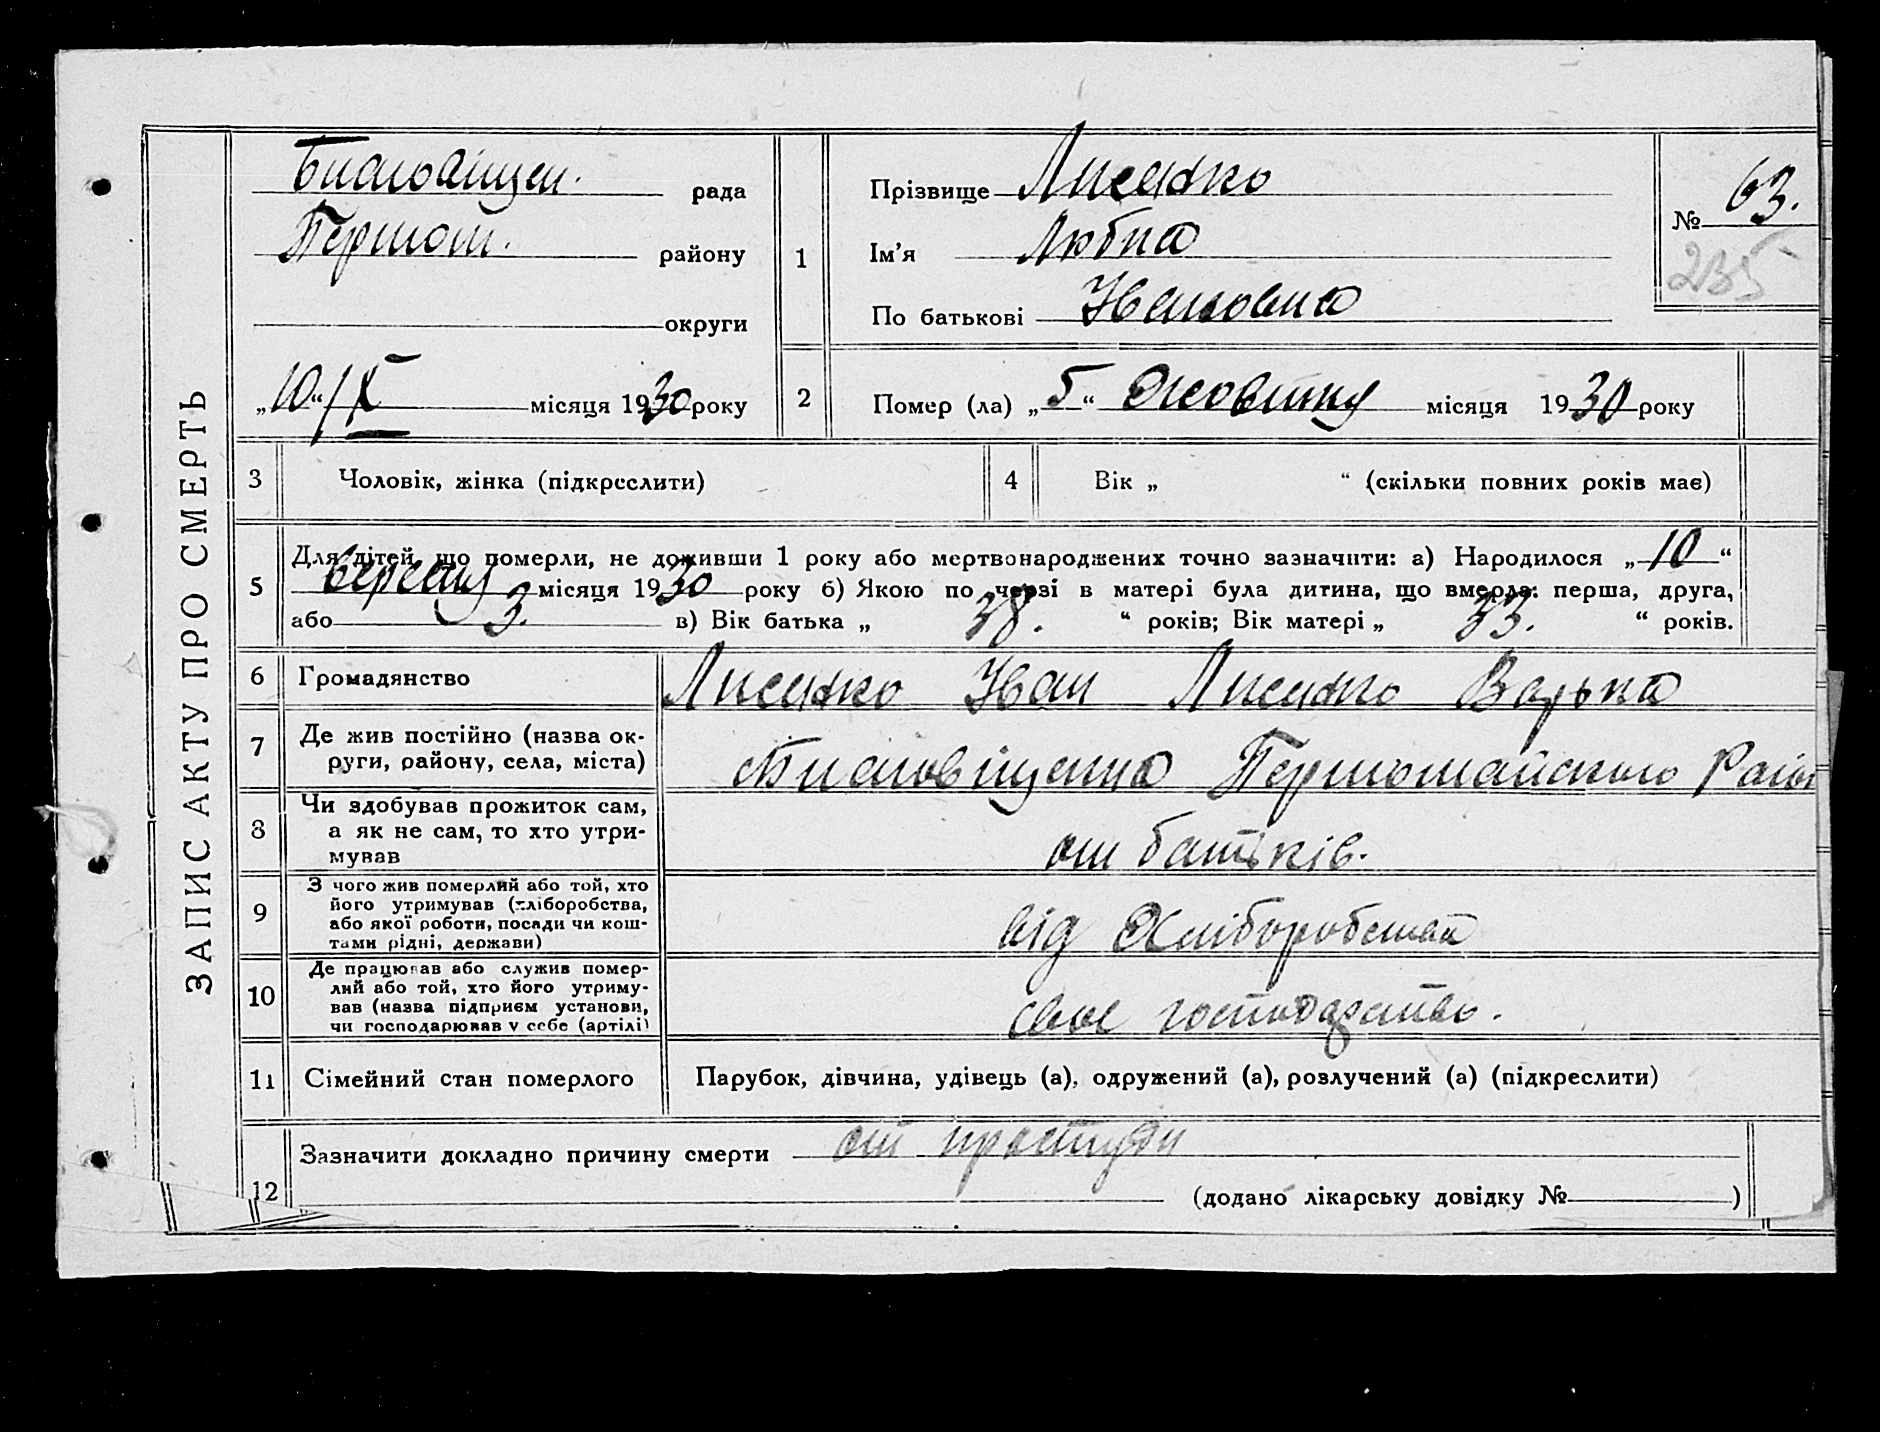 ЗАПИС АКТУ ПРО СМЕРТЬ
Благовіщен. рада
Першом. району
округи
„10“/X місяця 1930 року
1
Прізвище Лисенко
Ім'я Любка
По батькові Ивановна
№ 63.
235
2 Помер (ла) „5“ Жовтня місяця 1930 року
3 Чоловік, жінка (підкреслити)
4 Вік „ “ (скільки повних років має)
5 Для дітей, що померли, не доживши 1 року або мертвонароджених точно зазначити: а) Народилося „10“
Вересня місяця 1930 року б) Якою по черзі в матері була дитина, що вмерла: перша, друга,
або 3. в) Вік батька „ 38. “ років; Вік матері „ 33. “ років.
6 Громадянство Лисенко Иван Лисенко Варька
7 Де жив постійно (назва ок-
руги, району, села, міста) Благовіщенка Першомайского Райо
8 Чи здобував прожиток сам,
а як не сам, то хто утри-
мував от батьків.
9 З чого жив померлий або той, хто
його утримував (хліборобства,
або якої роботи, посади чи кош-
тами рідні, держави) від Хліборобства
10 Де працював або служив помер-
лий або той, хто його утриму-
вав (назва підприєм установи,
чи господарював у себе (артілі) своє господарство.
11 Сімейний стан померлого Парубок, дівчина, удівець (а), одружений (а), розлучений (а) (підкреслити)
12 Зазначити докладно причину смерти от простуди
(додано лікарську довідку № )